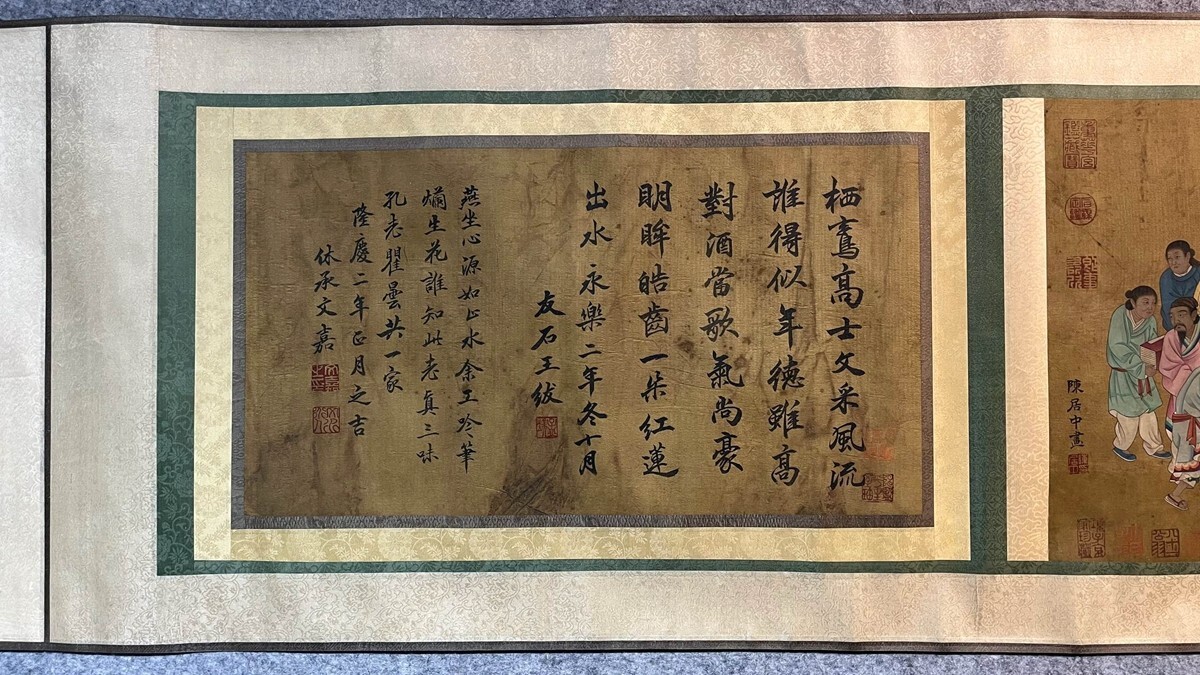 陳居中畫
栖鸞高士文采風流
誰得似年德雖高
對酒當歌氣尚豪
明眸皓齒一朵紅蓮
出水永樂二年冬十月
友石王紱
燕坐心源如止水余工珍筆
爛生花誰知此老真三味
孔老瞿曇共一家
隆慶二年正月之吉
休承文嘉